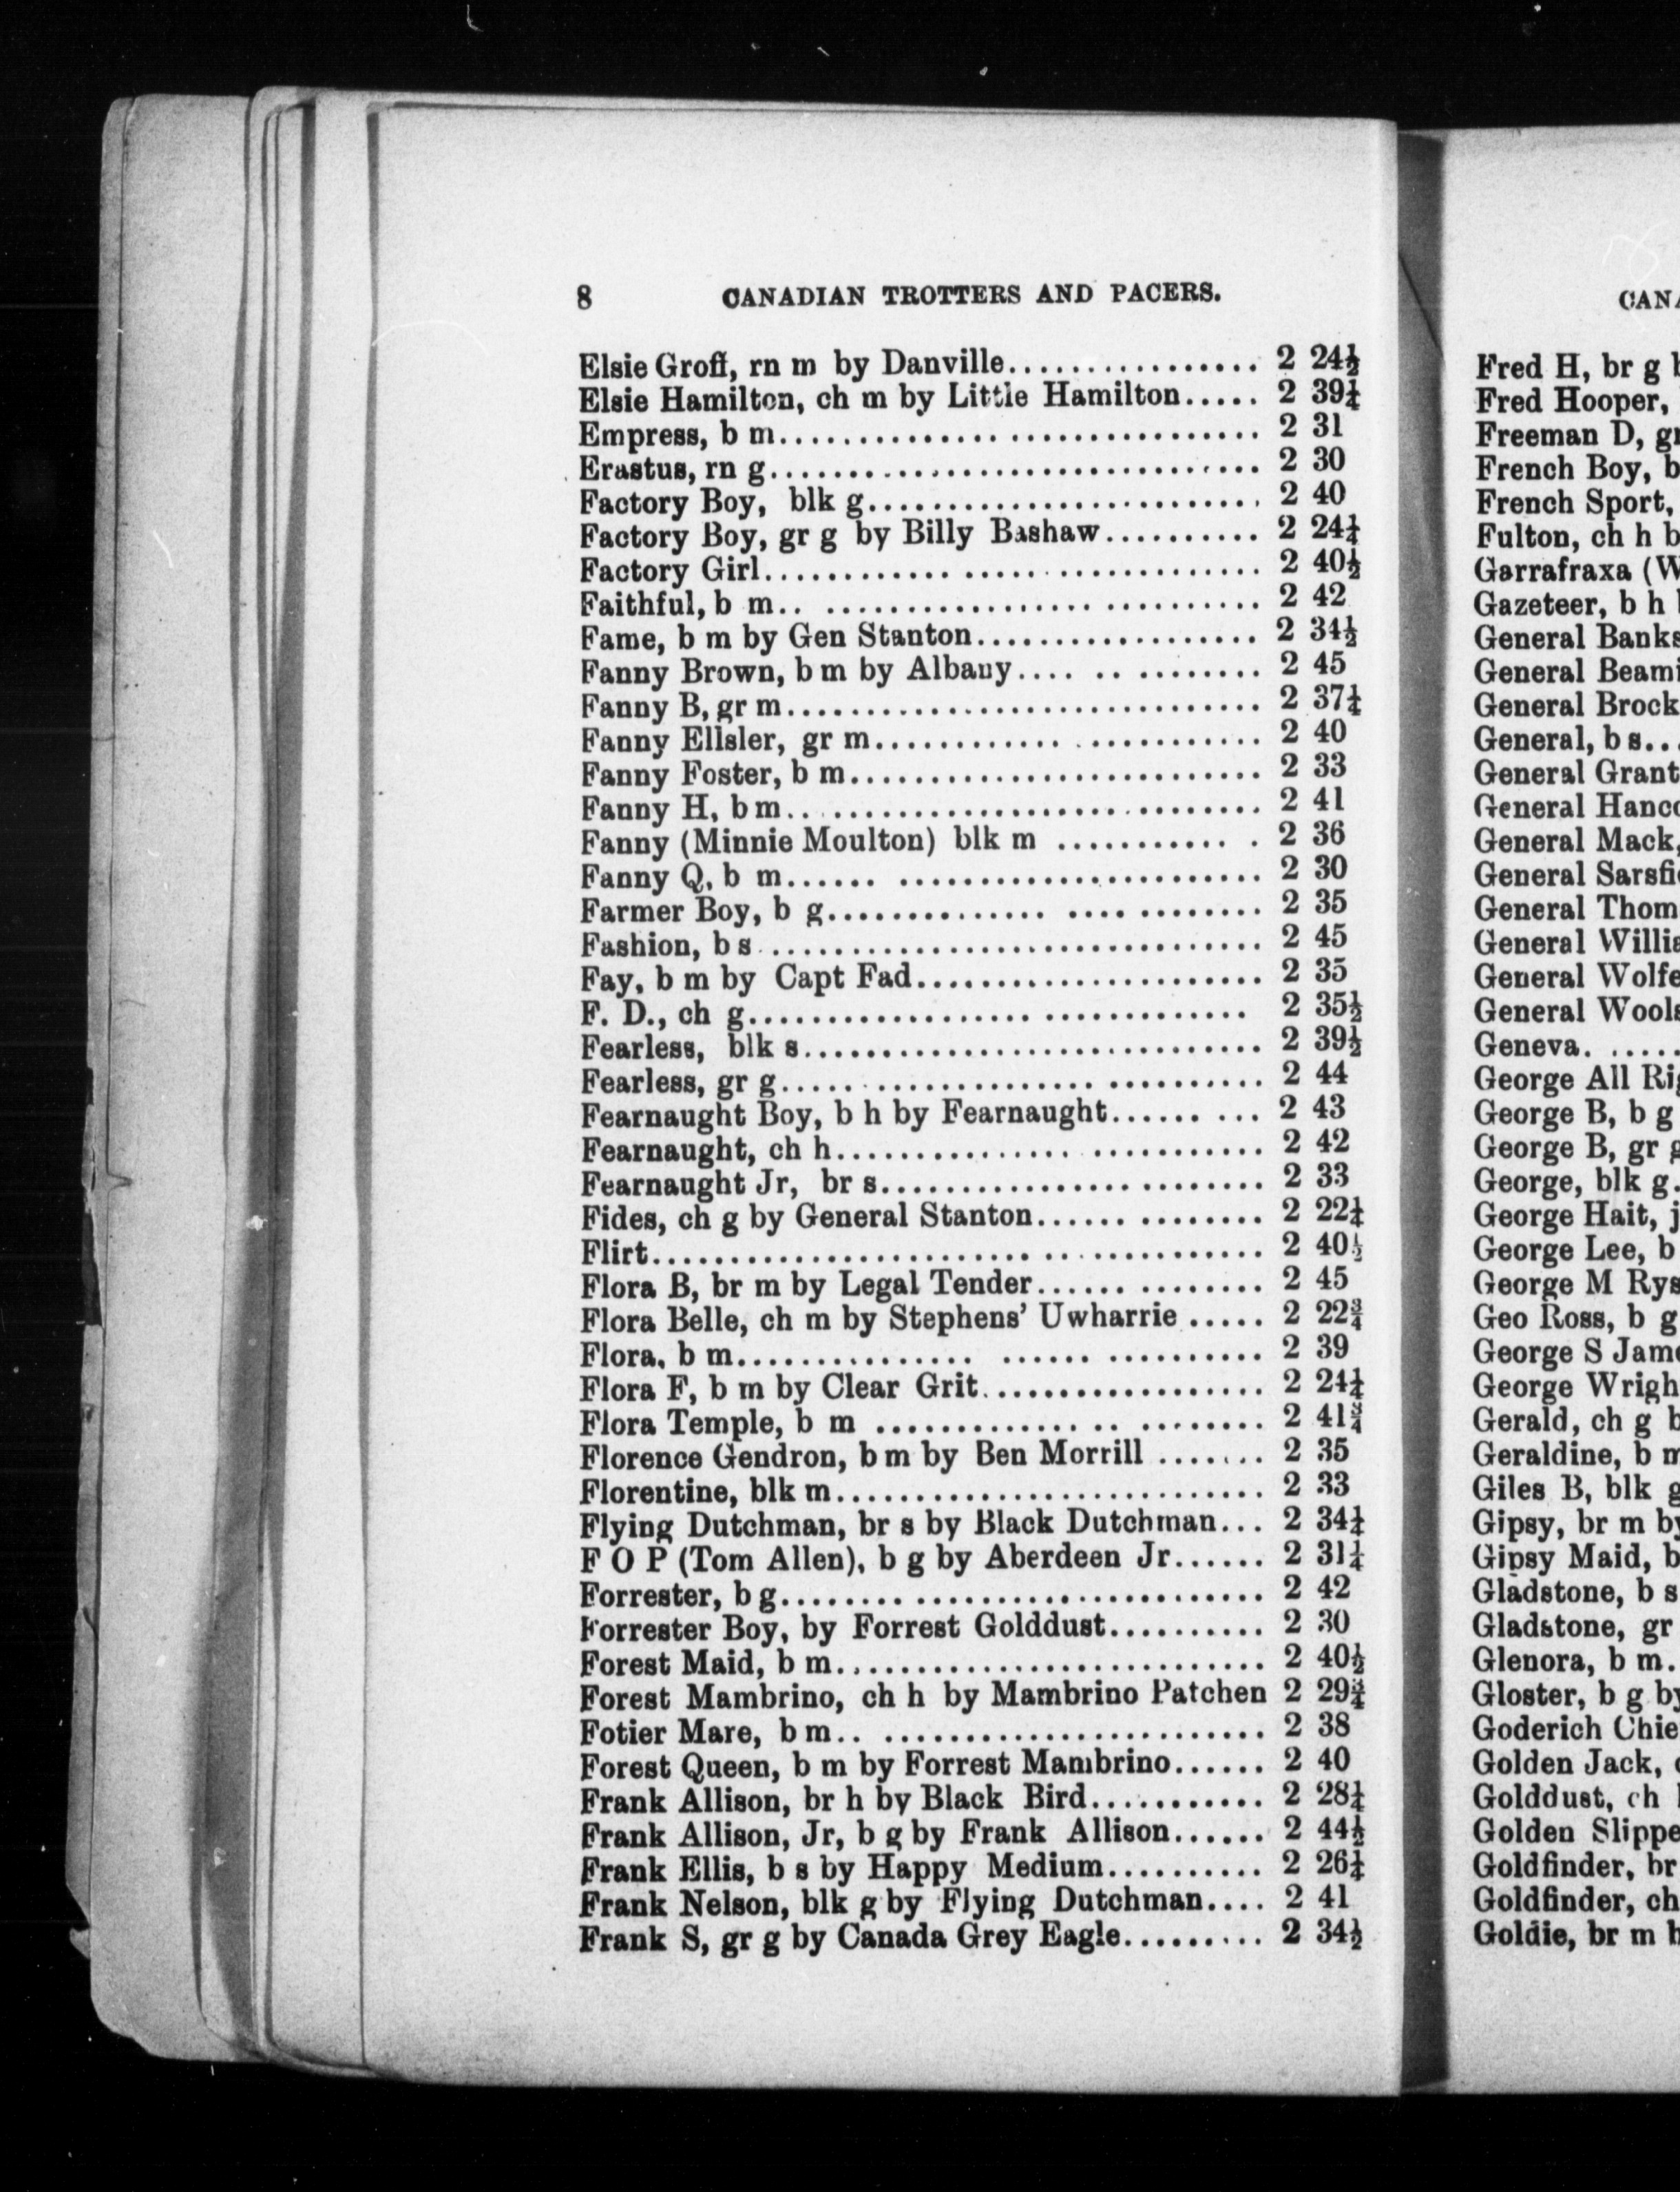 8 CANADIAN TROTTERS AND PACERS.
Elsie Groff, rn m by Danville................ 2 24½
Elsie Hamilton, ch m by Little Hamilton..... 2 39¼
Empress, b m.............................. 2 31
Erastus, rn g.............................. 2 30
Factory Boy, blk g......................... 2 40
Factory Boy, gr g by Billy Bashaw.......... 2 24¼
Factory Girl............................... 2 40½
Faithful, b m.. ........................... 2 42
Fame, b m by Gen Stanton.................. 2 34½
Fanny Brown, b m by Albany.... .. ........ 2 45
Fanny B, gr m.............................. 2 37¼
Fanny Ellsler, gr m........................ 2 40
Fanny Foster, b m.......................... 2 33
Fanny H, b m.............................. 2 41
Fanny (Minnie Moulton) blk m ........... . 2 36
Fanny Q, b m...... ....................... 2 30
Farmer Boy, b g.............. .... ........ 2 35
Fashion, b s................................ 2 45
Fay, b m by Capt Fad...................... 2 35
F. D., ch g.................. ............. 2 35½
Fearless, blk s............................. 2 39½
Fearless, gr g.............................. 2 44
Fearnaught Boy, b h by Fearnaught...... ... 2 43
Fearnaught, ch h........................... 2 42
Fearnaught Jr, br s........................ 2 33
Fides, ch g by General Stanton...... ........ 2 22¼
Flirt....................................... 2 40½
Flora B, br m by Legal Tender...... ........ 2 45
Flora Belle, ch m by Stephens' Uwharrie ..... 2 22¾
Flora, b m............... ...... .......... 2 39
Flora F, b m by Clear Grit.................. 2 24¼
Flora Temple, b m ............. .. ........ 2 41¾
Florence Gendron, b m by Ben Morrill ....... 2 35
Florentine, blk m........................... 2 33
Flying Dutchman, br s by Black Dutchman... 2 34¼
F O P (Tom Allen), b g by Aberdeen Jr...... 2 31¼
Forrester, b g............................... 2 42
Forrester Boy, by Forrest Golddust.......... 2 30
Forest Maid, b m........................... 2 40½
Forest Mambrino, ch h by Mambrino Patchen 2 29¾
Fotier Mare, b m.. ........................ 2 38
Forest Queen, b m by Forrest Mambrino...... 2 40
Frank Allison, br h by Black Bird........... 2 28¼
Frank Allison, Jr, b g by Frank Allison...... 2 44½
Frank Ellis, b s by Happy Medium.......... 2 26¼
Frank Nelson, blk g by Flying Dutchman.... 2 41
Frank S, gr g by Canada Grey Eagle......... 2 34½
Fred H, br g
Fred Hooper,
Freeman D,
French Boy, b
French Sport,
Fulton, ch h
Garrafraxa
Gazeteer, b h
General Banks
General
General Brock
General, b s...
General Grant
General
General Mack,
General
General
General
General Wolfe
General
Geneva. .....
George All
George B, b g
George B, gr
George, blk g.
George Hait,
George Lee, b
George M
Geo Ross, b g
George S
George
Gerald, ch g
Geraldine, b
Giles B, blk
Gipsy, br m
Gipsy Maid, b
Gladstone, b s
Gladstone, gr
Glenora, b m.
Gloster, b g
Goderich
Golden Jack,
Golddust, ch
Golden
Goldfinder, br
Goldfinder, ch
Goldie, br m